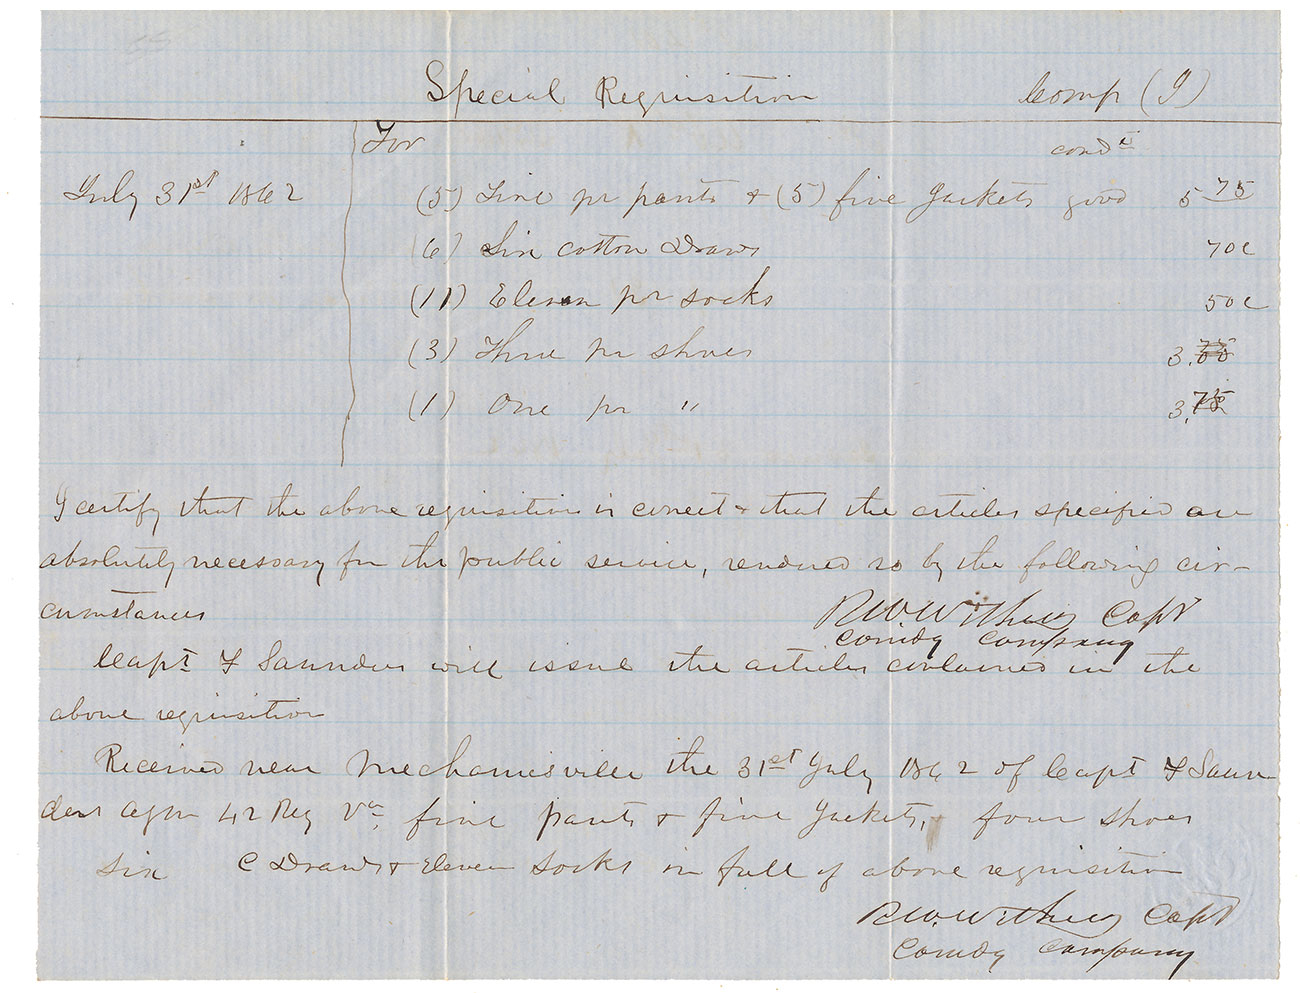 Special Requisition Comp (I)
For condn
July 31st 1862 (5) Five pr pants & (5) five Jackets good 5 75
(6) Six cotton Draws 70c
(11) Eleven pr socks 50c
(3) Three pr shoes 3.
(1) One pr " 3.
I certify that the above requisition is correct & that the articles specified are
absolutely necessary for the public service, rendered so by the following cir-
cumstances R W Withers Capt
Comdg Company
Capt F Saunders will issue the articles contained in the
above requisition
Received near Mechanicsville the 31st July 1862 of Capt F Saun
ders aqm 42 Reg Va, five pants & five Jackets, four shoes
six C Draws & Eleven Socks in full of above requisition
R.W. Withers Capt
Comdg Company